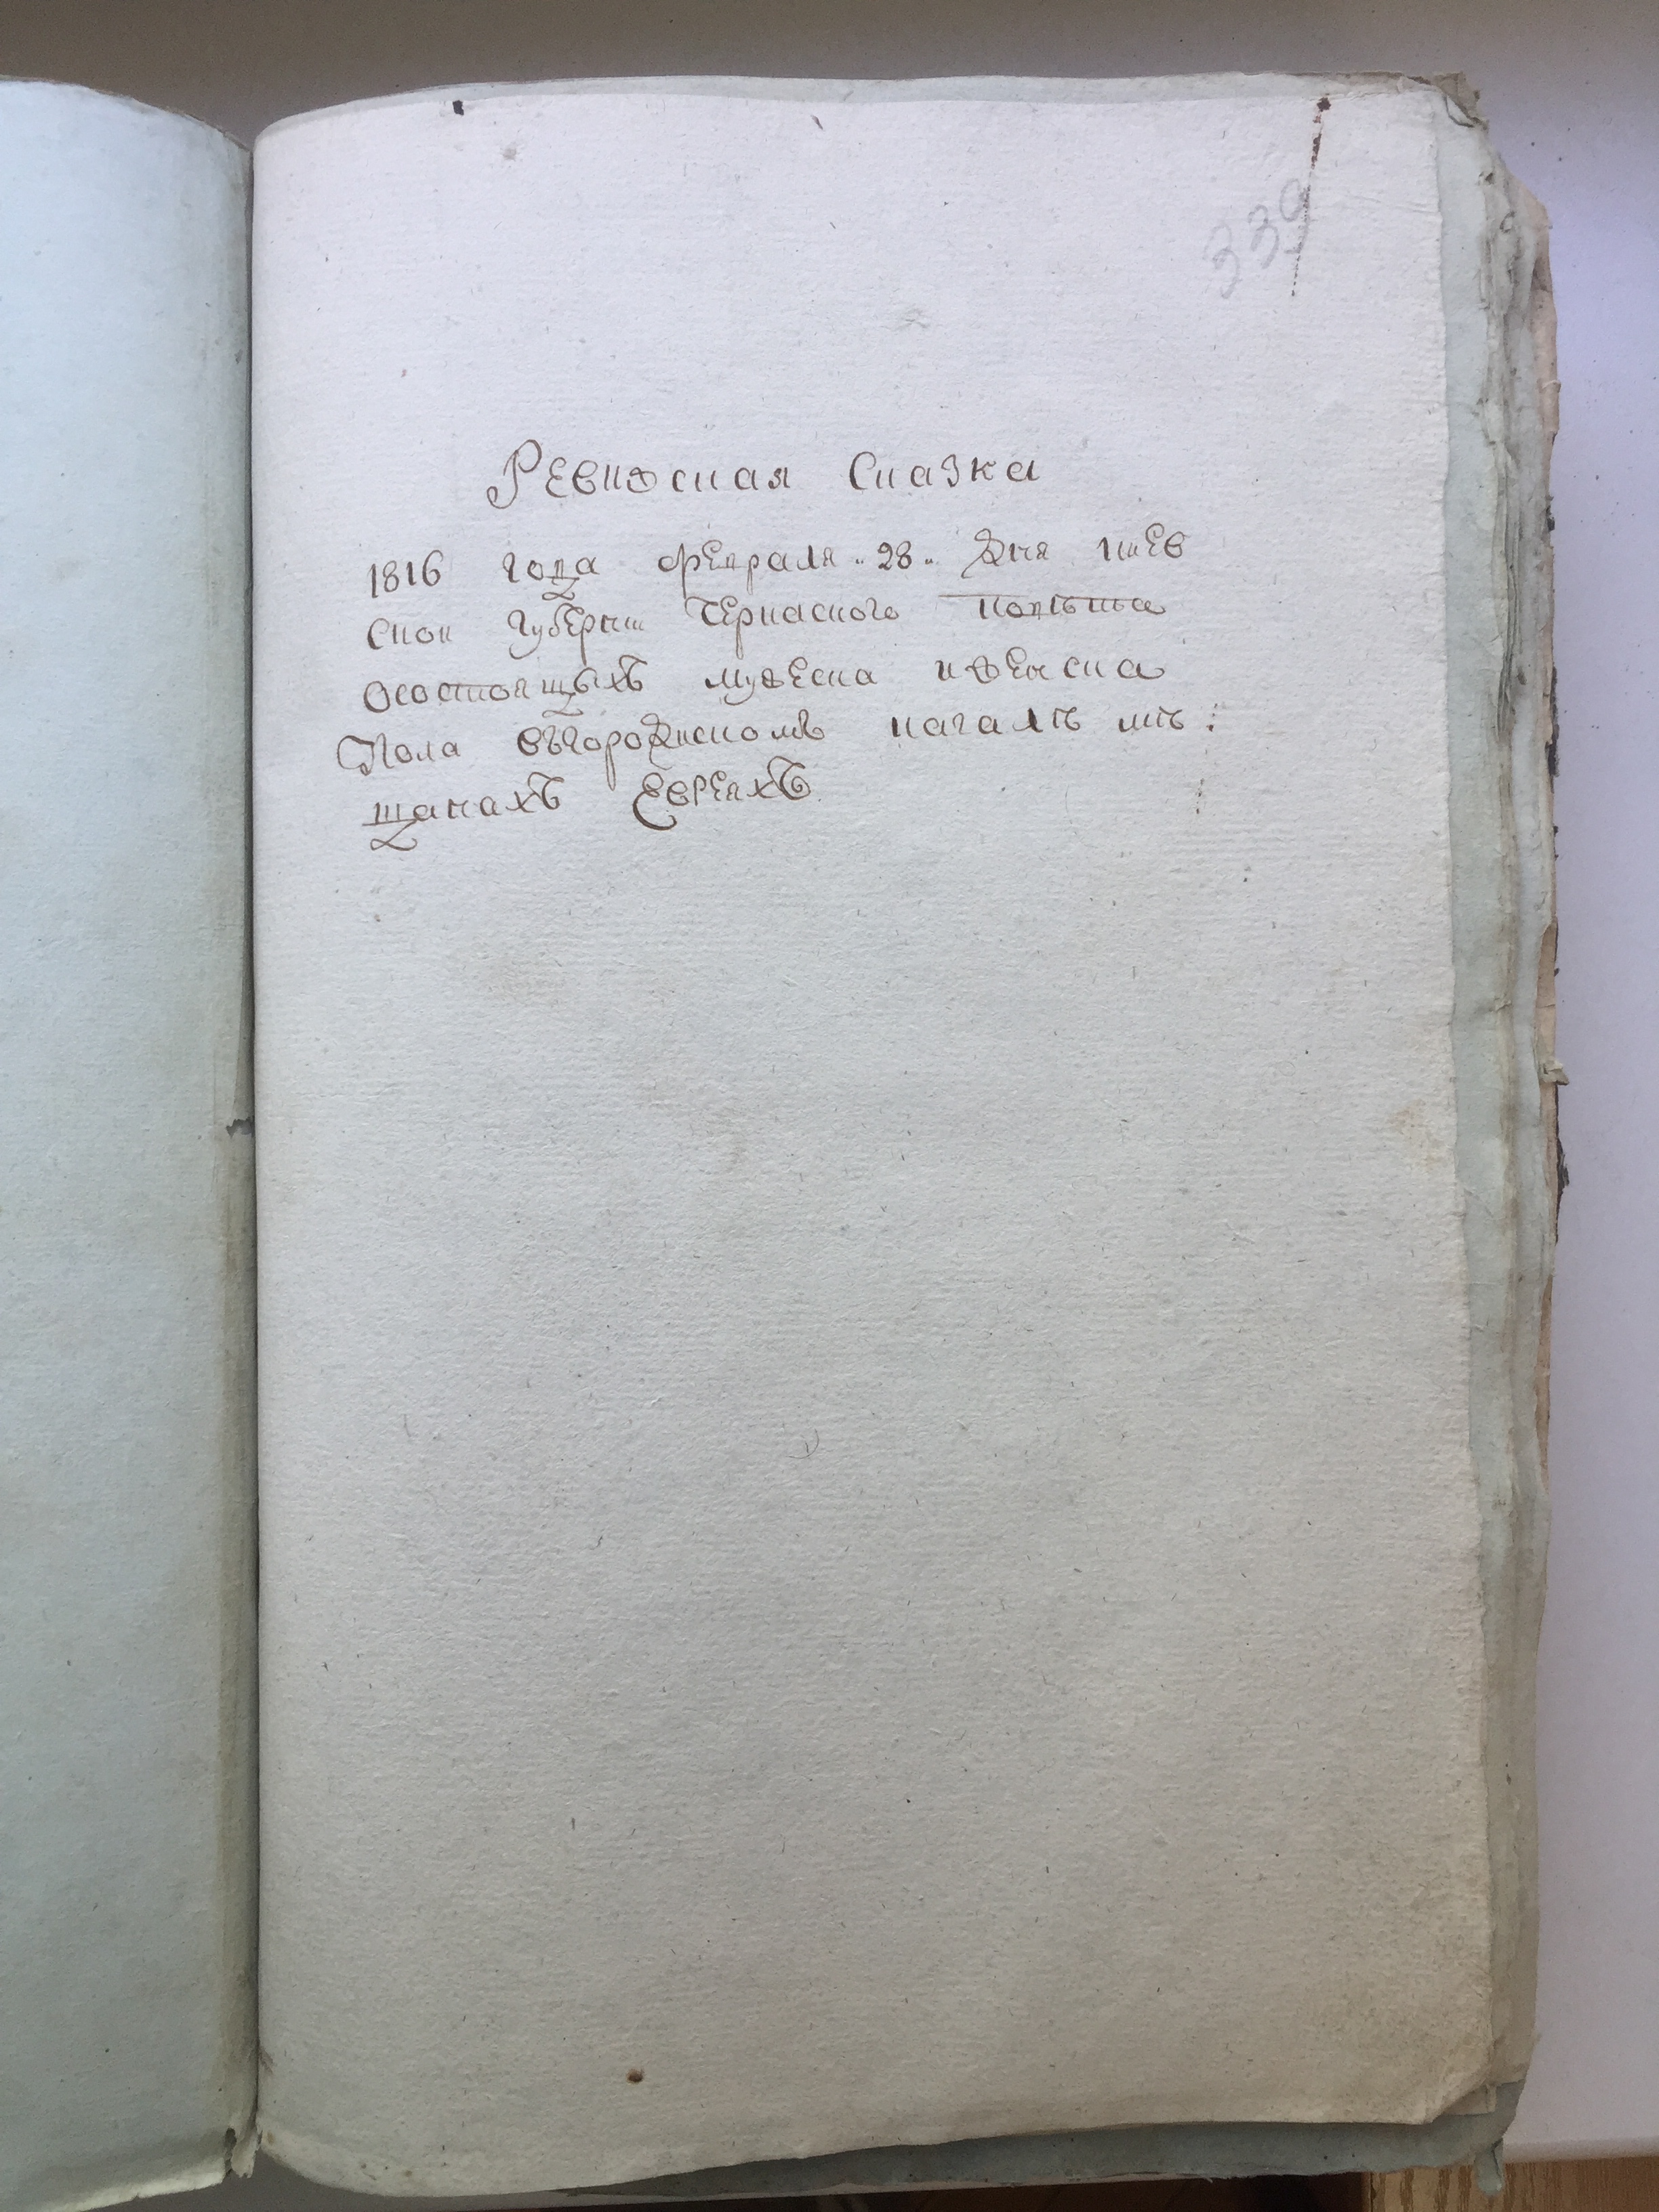 339
Ревизская Сказка
1816 года февраля „28„ дня киев
ской губернии Черкаского повѣта
осостоящыхъ мужеска иженска
Пола въгородиском нагалѣ мѣ:
щанахъ Евреяхъ